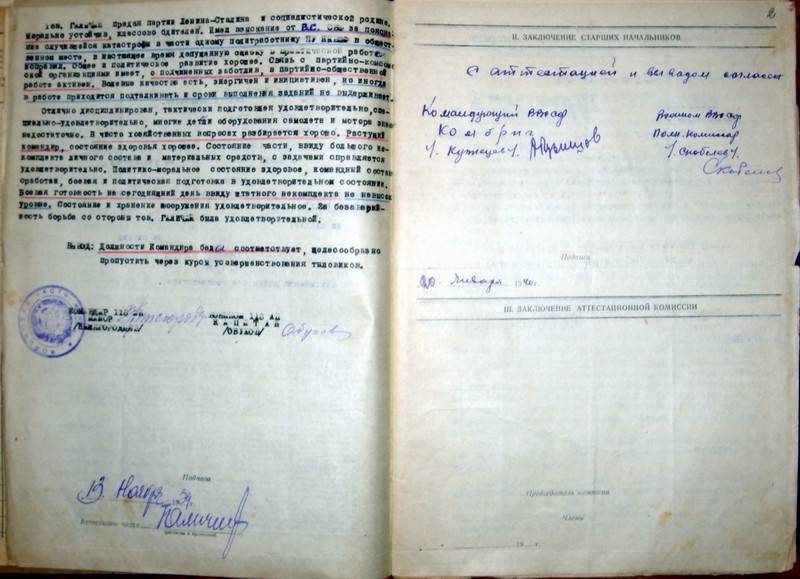 Тов. Галичев предан партии Ленина-Сталина и социалистической родине.
Морально устойчив, классово бдителен. Имел взыскание от В.С.
шие случившейся катастрофы в части одному политработнику в общест-
венном месте, в настоящее время допущенную ошибку в практической работе
исправил. Общее и политическое развитие хорошее. Связь с партийно-комсомоль-
ской организациями имеет, с подчиненных работая, в партийно-общественной
работе активен. Волевые качества есть, энергичен и инициативен, но иногда
в работе приходится подталкивать и сроки выполнения заданий не выдерживает.
Отлично дисциплинирован, тактически подготовлен удовлетворительно, спе-
циально-удовлетворительно, многие детали оборудования самолета и мотора знает
недостаточно. В чисто хозяйственных вопросах разбирается хорошо. Растущий
командир, состояние здоровья хорошее. Состояние части, ввиду большого не-
комплекта личного состава и материальных средств, с задачами справляется
удовлетворительно. Политико-моральное состояние здоровое, командный состав
сработан, боевая и политическая подготовка в удовлетворительном состоянии.
Боевая готовность на сегодняшний день ввиду штатного некомплекта не на высоком
уровне. Состояние и хранение вооружения удовлетворительное. За безаварий-
ность борьба со стороны тов. Галичев была удовлетворительной.
Вывод: Должности Командира базы соответствует, целесообразно
пропустить через курсы усовершенствования тыловиков.
КОМАНДИР 118
МАЙОР
ВОЕНКОМ 118 АП
КАПИТАН
/ОБУХОВ/
Обухов
Подпись
13 Ноября 1939.
Аттестацию читал
Галичев
2
II. ЗАКЛЮЧЕНИЕ СТАРШИХ НАЧАЛЬНИКОВ
С аттестацией и выводом согласен
Командующий ВВС
Комбриг
/. Кузнецов./
Военком ВВС
Полк. Комиссар
/. Скобелев/.
Подпись
20. Января 1940г.
III. ЗАКЛЮЧЕНИЕ АТТЕСТАЦИОННОЙ КОМИССИИ
Председатель комиссии
Члены
19 г.